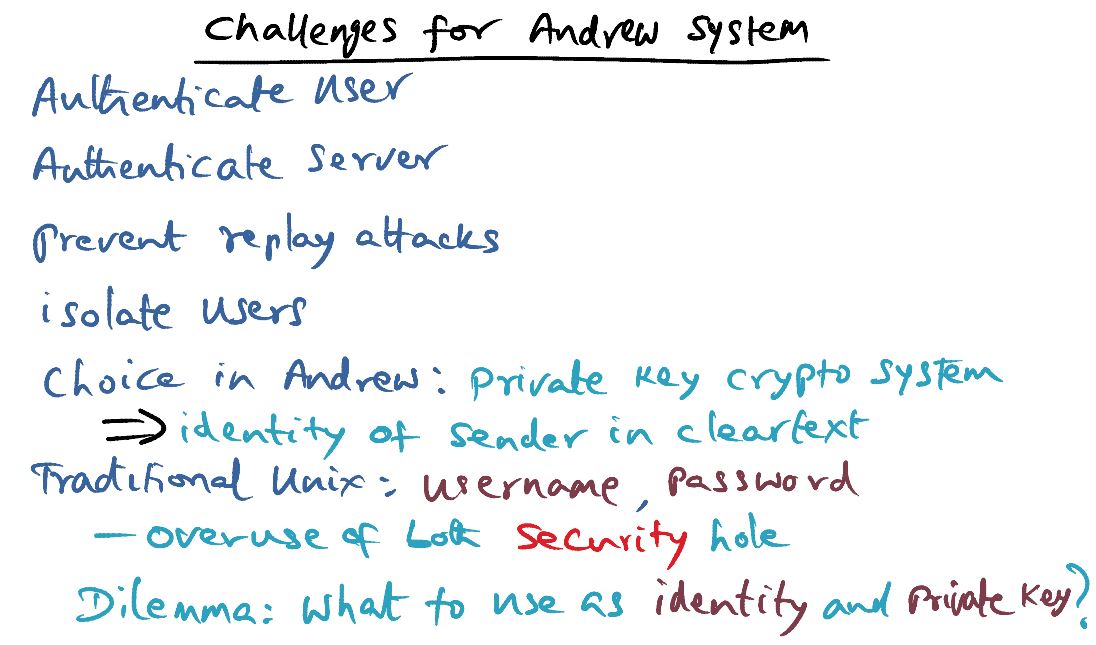 Challenges for Andrew System
Authenticate user
Authenticate server
prevent replay attacks
isolate users
Choice in Andrew: private key crypto system
⇒ identity of sender in cleartext
Traditional Unix: username, password
— overuse of both security hole
Dilemma: what to use as identity and private key?